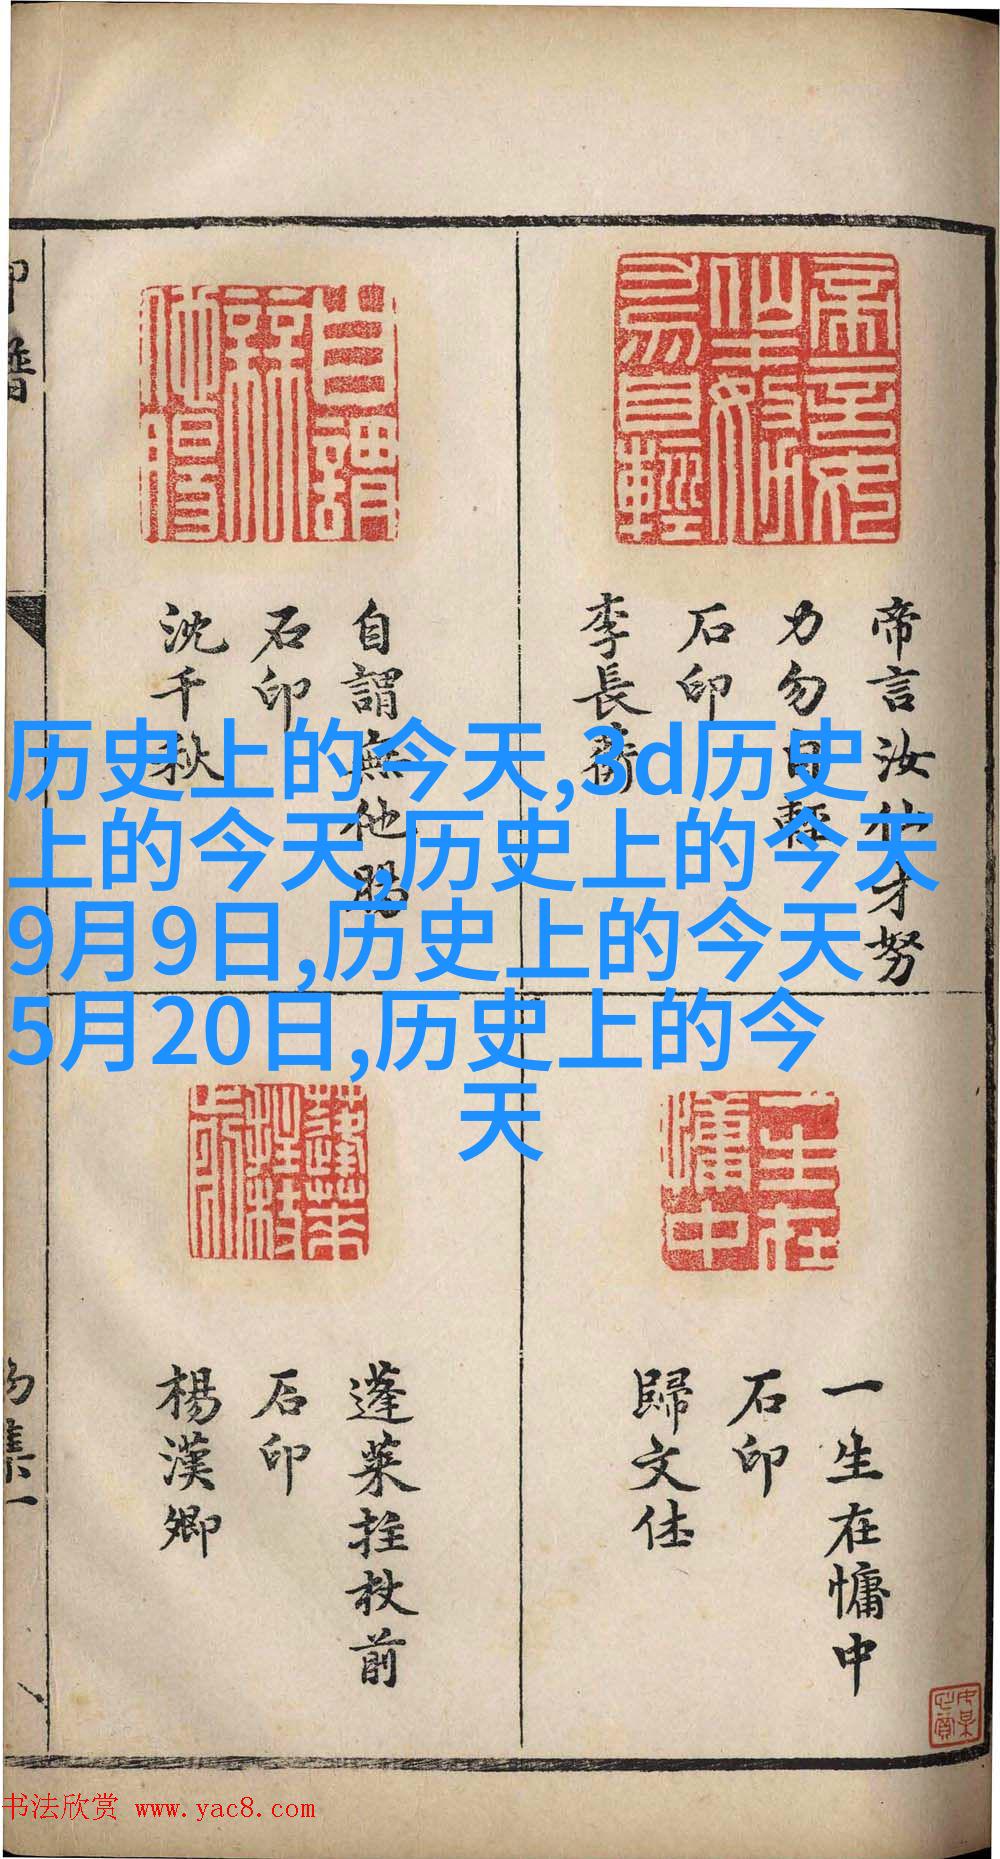 历史上的今天,3d历史
上的今天,历史上的今天
9月9日,历史上的今天
5月20日,历史上的今
天
帝言汝他才努
力勿自輕
石印
李長蘅
自謂無他腸
石印
沈千秋
一生在慵中
石印
歸文休
蓬萊拄杖前
石印
楊漢卿
印譜
书法欣赏 www.yac8.com